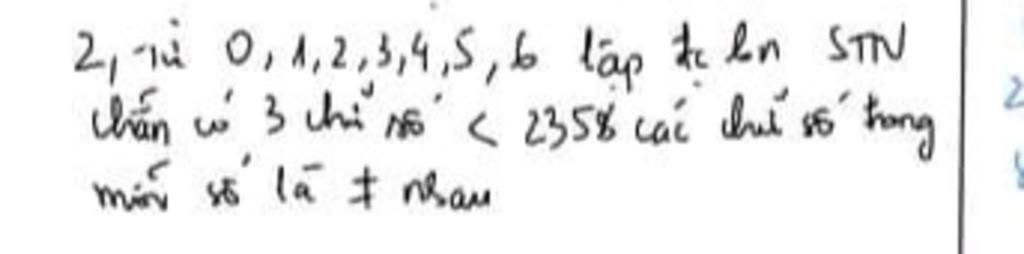 2, từ 0, 1, 2, 3, 4, 5, 6 lập đc bn STN
chẵn có 3 chữ số < 2358 các chữ số trong
mỗi số là ≠ nhau